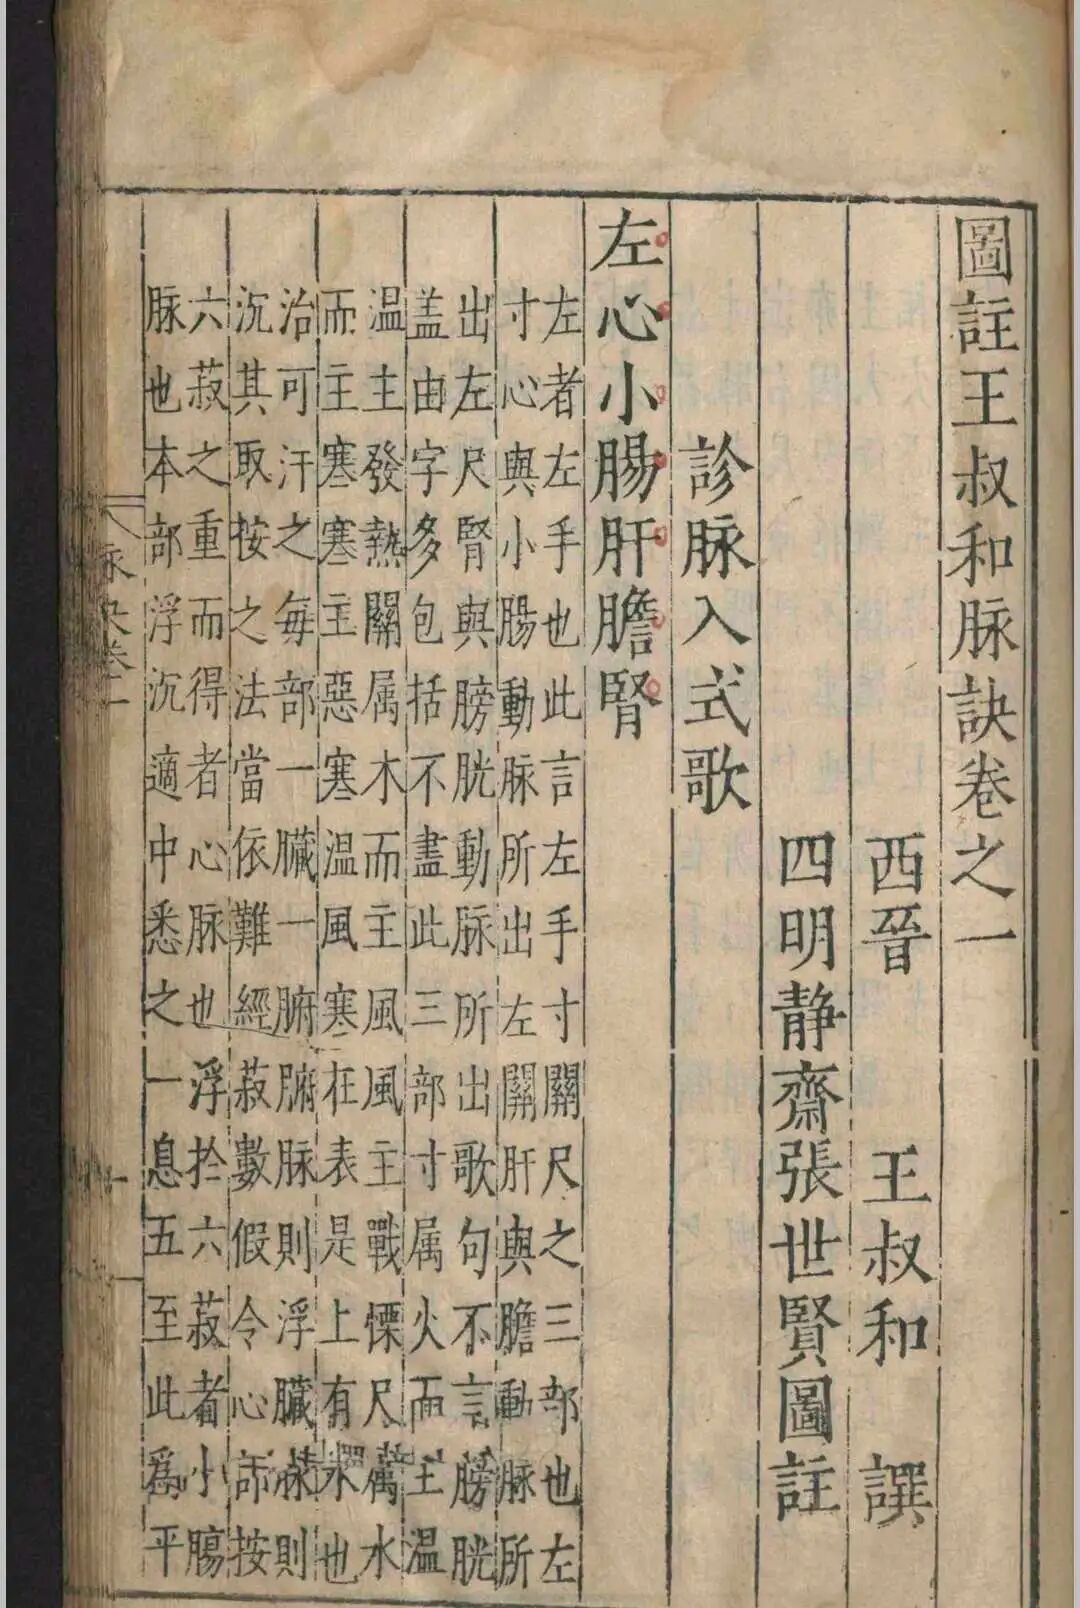 圖註王叔和脉訣卷之一
西晉 王叔和 譔
四明靜齋張世賢圖註
診脉入式歌
左心小腸肝膽腎
左者左手也此言左手寸關尺之三部也左
寸心與小腸動脉所出左關肝與膽動脉所
出左尺腎與膀胱動脉所出歌句不言膀胱
盖由字多包括不盡此三部寸属火而主温
温主發熱關属木而主風風主戰慄尺属水
而主寒寒主惡寒温風寒在表是上有水也
治可汗之每部一臟一腑腑脉則浮臟脉則
沉其取按之法當依難經菽數假令心部按
六菽之重而得者心脉也浮扵六菽者小腸
脉也本部浮沉適中悉之一息五至此為平
脉決卷一
一